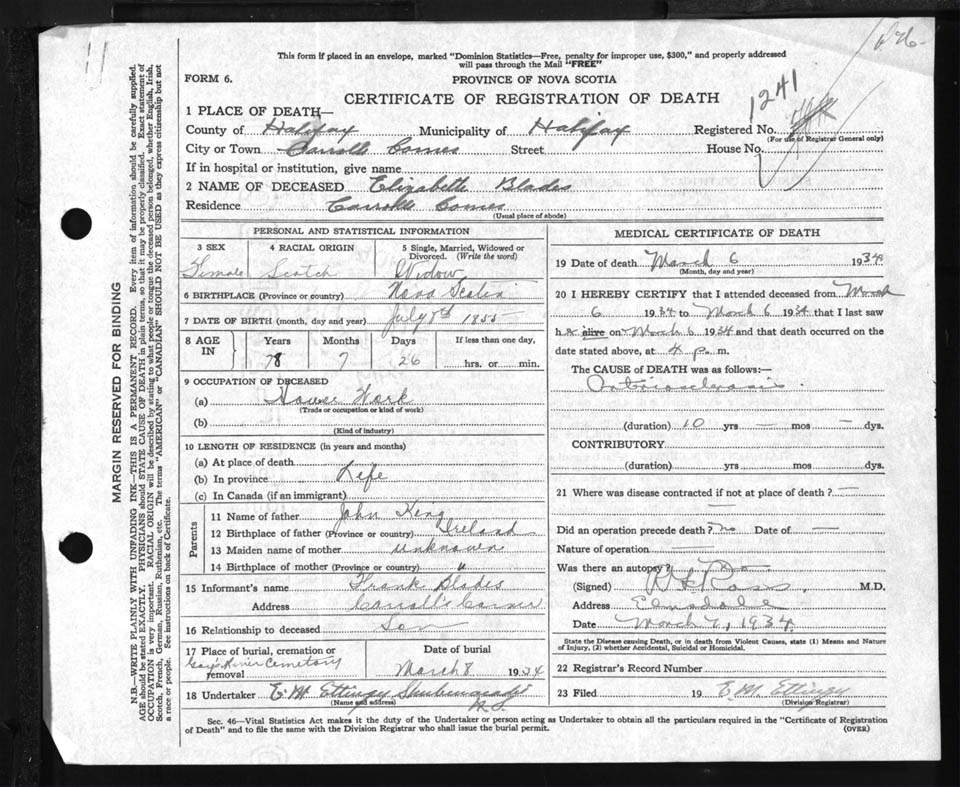 This form if placed in an envelope, marked "Dominion Statistics—Free, penalty for improper use, $300," and properly addressed
will pass through the Mail "FREE"
FORM 6.
PROVINCE OF NOVA SCOTIA
CERTIFICATE OF REGISTRATION OF DEATH
1241
1 PLACE OF DEATH—
County of Halifax Municipality of Halifax Registered No.
(For use of Registrar General only)
City or Town Carrolls Corner Street House No.
If in hospital or institution, give name
2 NAME OF DECEASED Elizabeth Blades
Residence Carrolls Corner
(Usual place of abode)
PERSONAL AND STATISTICAL INFORMATION
3 SEX 4 RACIAL ORIGIN 5 Single, Married, Widowed or
Divorced. (Write the word)
Female Scotch Widow
6 BIRTHPLACE (Province or country) Nova Scotia
7 DATE OF BIRTH (month, day and year) July 8th 1855
8 AGE IN Years Months Days If less than one day,
78 7 26 hrs. or min.
9 OCCUPATION OF DECEASED
(a) House Work
(Trade or occupation or kind of work)
(b)
(Kind of industry)
10 LENGTH OF RESIDENCE (in years and months)
(a) At place of death
(b) In province Life
(c) In Canada (if an immigrant)
Parents
11 Name of father John King
12 Birthplace of father (Province or country) Ireland
13 Maiden name of mother unknown
14 Birthplace of mother (Province or country) "
15 Informant's name Frank Blades
Address Carroll's Corner
16 Relationship to deceased Son
17 Place of burial, cremation or removal Gay's River Cemetary
Date of burial
March 8 1934
18 Undertaker E. M. Ettinger Shubenacadie
(Name and address) N.S.
MEDICAL CERTIFICATE OF DEATH
19 Date of death March 6 1934
(Month, day and year)
20 I HEREBY CERTIFY that I attended deceased from March
6 1934 to March 6 1934 that I last saw
h er alive on March 6 1934 and that death occurred on
date stated above, at 4 p. m.
The CAUSE of DEATH was as follows:—
Arteriosclerosis
(duration) 10 yrs — mos — dys.
CONTRIBUTORY
(duration) yrs mos dys.
21 Where was disease contracted if not at place of death? —
—
Did an operation precede death? No Date of —
Nature of operation —
Was there an autopsy? No
(Signed) Ross M.D.
Address Elmsdale
Date March 7, 1934
State the Disease causing Death, or in death from Violent Causes, state (1) Means and Nature
of Injury, (2) whether Accidental, Suicidal or Homicidal.
22 Registrar's Record Number
23 Filed 19 E. M. Ettinger
(Division Registrar)
Sec. 46—Vital Statistics Act makes it the duty of the Undertaker or person acting as Undertaker to obtain all the particulars required in the "Certificate of Registration
of Death" and to file the same with the Division Registrar who shall issue the burial permit.
(OVER)
MARGIN RESERVED FOR BINDING
N.B.—WRITE PLAINLY WITH UNFADING INK—THIS IS A PERMANENT RECORD. Every item of information should be carefully supplied.
AGE should be stated EXACTLY. PHYSICIANS should STATE CAUSE OF DEATH in plain terms, so that it may be properly classified. Exact statement of
OCCUPATION is very important. RACIAL ORIGIN will be described by stating to what people or tongue the deceased person belonged, whether English, Irish,
Scotch, French, German, Russian, Ruthenian, etc. The terms "AMERICAN" or "CANADIAN" SHOULD NOT BE USED as they express citizenship but not
a race or people. See instructions on back of Certificate.